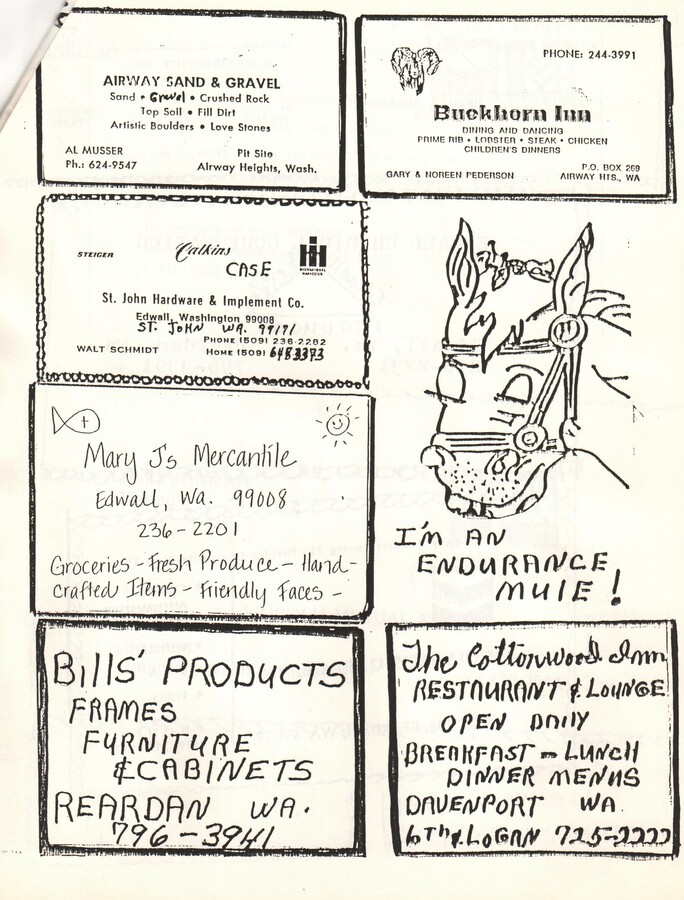 AIRWAY SAND & GRAVEL
Sand • Gravel • Crushed Rock
Top Soil • Fill Dirt
Artistic Boulders • Love Stones
AL MUSSER
Pit Site
Ph.: 624-9547
Airway Heights, Wash.
PHONE: 244-3991
Buckhorn Inn
DINING AND DANCING
PRIME RIB • LOBSTER • STEAK • CHICKEN
CHILDREN'S DINNERS
P.O. BOX 269
GARY & NOREEN PEDERSON
AIRWAY HTS., WA
STEIGER
Calkins
CASE
INTERNATIONAL HARVESTER
St. John Hardware & Implement Co.
Edwall, Washington 99008
ST. JOHN WA. 99171
PHONE (509) 236-2282
WALT SCHMIDT
HOME (509) 648 3373
Mary J's Mercantile
Edwall, Wa. 99008
236-2201
Groceries - Fresh Produce - Hand-
crafted Items - Friendly Faces -
I'M AN
ENDURANCE
MULE!
BILLS PRODUCTS
FRAMES
FURNITURE
& CABINETS
REARDAN WA.
796-3941
The Cottonwood Inn
RESTAURANT & LOUNGE
OPEN DAILY
BREAKFAST - LUNCH
DINNER MENUS
DAVENPORT WA.
6th & LOGAN 725-2222